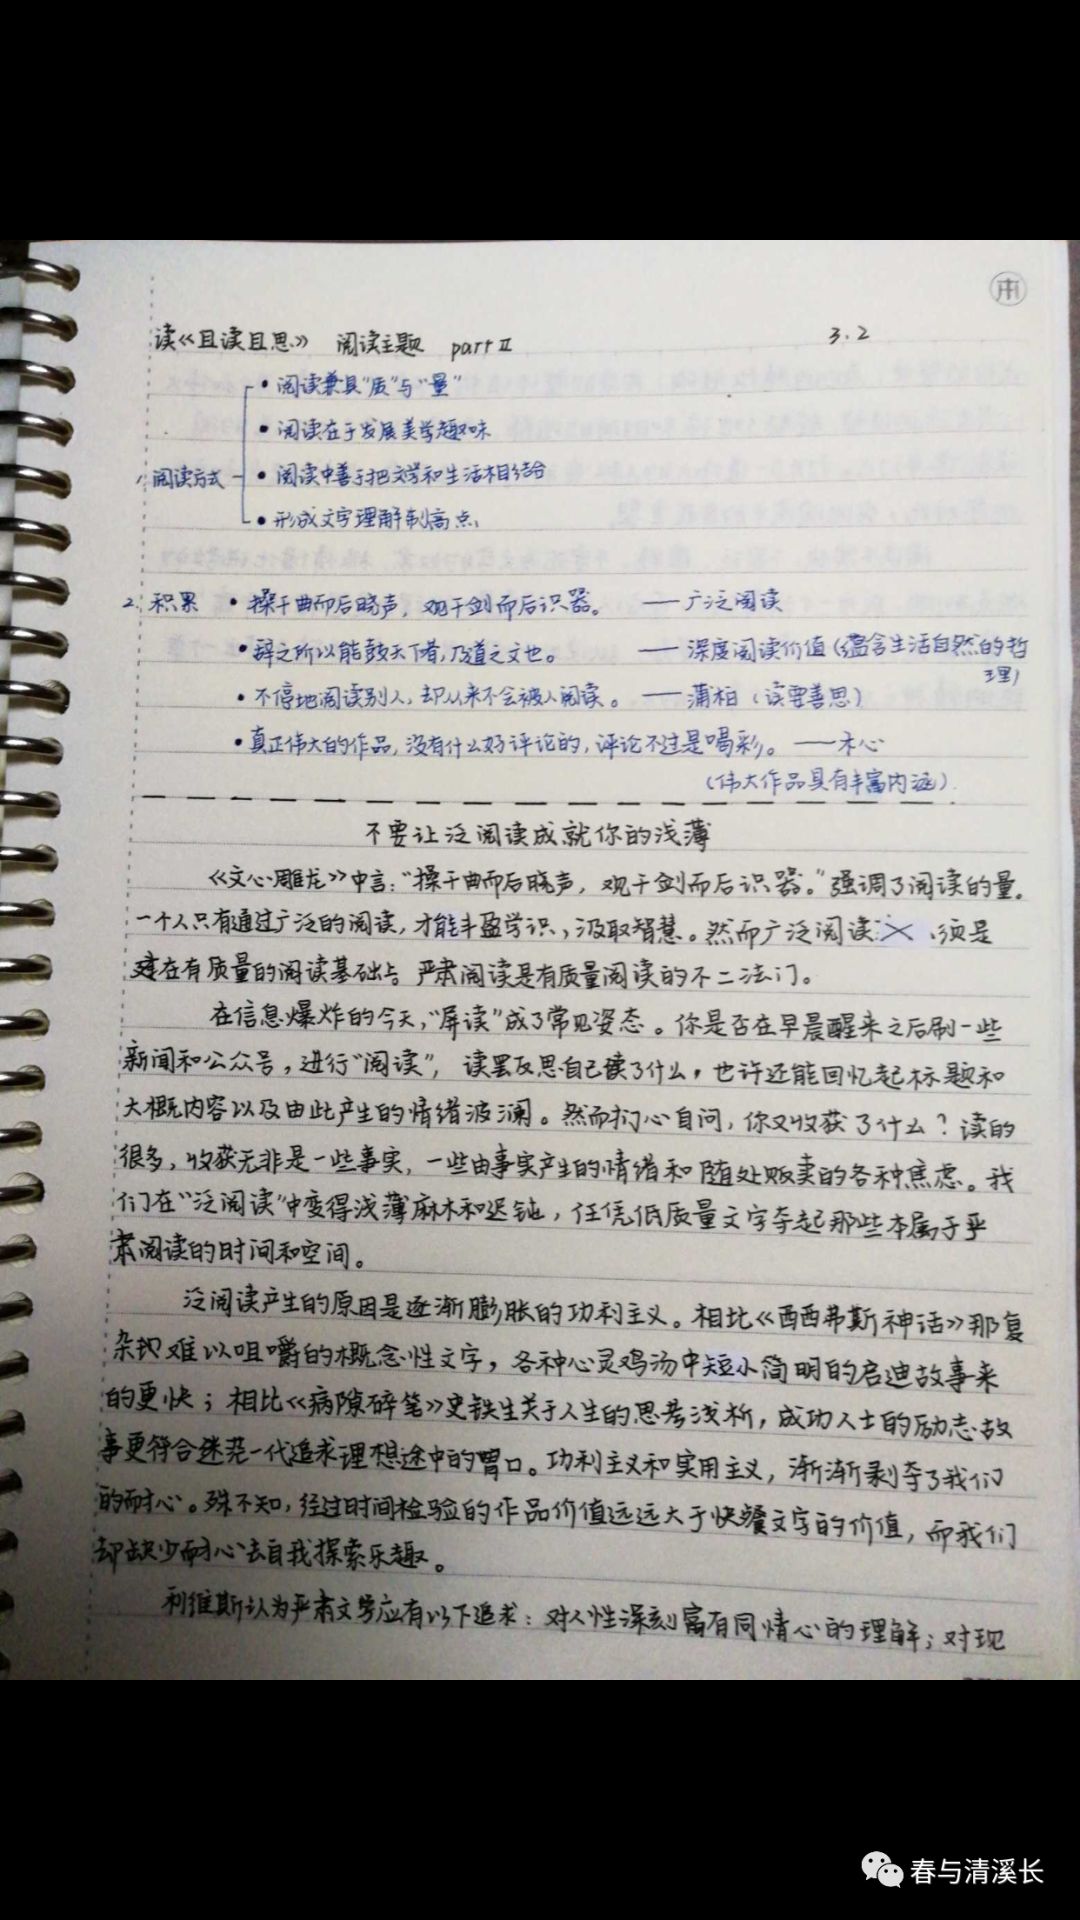 读《且读且思》 阅读主题 part Ⅱ 3.2
• 阅读兼具“质”与“量”
• 阅读在于发展美学趣味
1. 阅读方式
• 阅读中善于把文学和生活相结合
• 形成文字理解制高点
2. 积累 • 操千曲而后晓声，观千剑而后识器。 ——广泛阅读
• 辞之所以能鼓天下者，乃道之文也。 ——深度阅读价值（蕴含生活自然的哲
理）
• 不停地阅读别人，却从来不会被人阅读。 ——蒲柏（读要善思）
• 真正伟大的作品，没有什么好评论的，评论不过是喝彩。 ——木心
（伟大作品具有丰富内涵）.
不要让泛阅读成就你的浅薄
《文心雕龙》中言：“操千曲而后晓声，观千剑而后识器。”强调了阅读的量。
一个人只有通过广泛的阅读，才能丰盈学识，汲取智慧。然而广泛阅读 须是
建在有质量的阅读基础上。严肃阅读是有质量阅读的不二法门。
在信息爆炸的今天，“屏读”成了常见姿态。你是否在早晨醒来之后刷一些
新闻和公众号，进行“阅读”，读罢反思自己读了什么，也许还能回忆起标题和
大概内容以及由此产生的情绪波澜。然而扪心自问，你又收获了什么？读的
很多，收获无非是一些事实，一些由事实产生的情绪和随处贩卖的各种焦虑。我
们在“泛阅读”中变得浅薄麻木和迟钝，任凭低质量文字夺起那些本属于严
肃阅读的时间和空间。
泛阅读产生的原因是逐渐膨胀的功利主义。相比《西西弗斯神话》那复
杂艰难以咀嚼的概念性文字，各种心灵鸡汤中短小简明的启迪故事来
的更快；相比《病隙碎笔》史铁生关于人生的思考浅析，成功人士的励志故
事更符合迷茫一代追求理想途中的胃口。功利主义和实用主义，渐渐剥夺了我们
的耐心。殊不知，经过时间检验的作品价值远远大于快餐文字的价值，而我们
却缺少耐心去自我探索乐趣。
利维斯认为严肃文学应有以下追求：对人性深刻富有同情心的理解；对现
春与清溪长